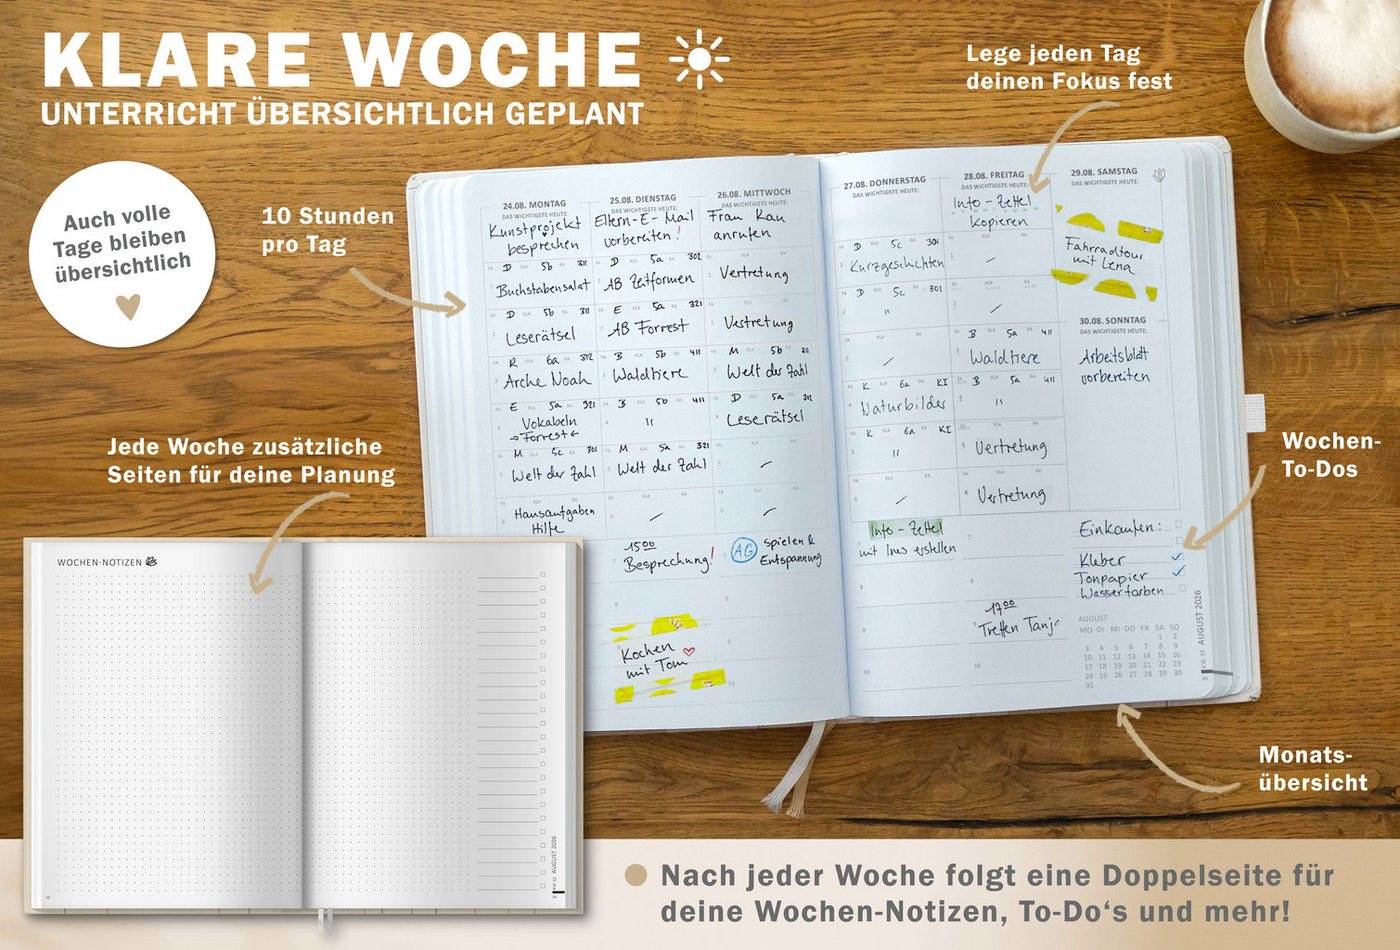 KLARE WOCHE
UNTERRICHT ÜBERSICHTLICH GEPLANT
Auch volle
Tage bleiben
übersichtlich
10 Stunden
pro Tag
Lege jeden Tag
deinen Fokus fest
Jede Woche zusätzliche
Seiten für deine Planung
Wochen-
To-Dos
Monats-
übersicht
24.08. MONTAG
DAS WICHTIGSTE HEUTE:
Kunstprojekt
besprechen
D 5b 311
Buchstabensalat
D 5b 311
Leserätsel
R 6a 312
Arche Noah
E 5a 321
Vokabeln
→Forrest←
M 5c 321
Welt der Zahl
Hausaufgaben
Hilfe
25.08. DIENSTAG
DAS WICHTIGSTE HEUTE:
Eltern-E-Mail
vorbereiten!
D 5a 302
AB Zeitformen
E 5a 321
AB Forrest
B 5b 411
Waldtiere
B 5b 411
"
M 5a 321
Welt der Zahl
15⁰⁰
Besprechung!
Kochen
mit Tom
26.08. MITTWOCH
DAS WICHTIGSTE HEUTE:
Frau Kau
anrufen
Vertretung
Vertretung
M 5b 311
Welt der Zahl
D 5a 312
Leserätsel
AG spielen &
Entspannung
27.08. DONNERSTAG
DAS WICHTIGSTE HEUTE:
D 5c 301
Kurzgeschichten
D 5c 301
"
K 6a KI
Naturbilder
K 6a KI
"
Info-Zettel
mit Ines erstellen
28.08. FREITAG
DAS WICHTIGSTE HEUTE:
Info-Zettel
kopieren
B 5a 411
Waldtiere
B 5a 411
"
Vertretung
Vertretung
17⁰⁰
Treffen Tanja
29.08. SAMSTAG
DAS WICHTIGSTE HEUTE:
Fahrradtour
mit Lena
30.08. SONNTAG
DAS WICHTIGSTE HEUTE:
Arbeitsblatt
vorbereiten
Einkaufen:
Kleber
Tonpapier
Wasserfarben
AUGUST
MO DI MI DO FR SA SO
1 2
3 4 5 6 7 8 9
10 11 12 13 14 15 16
17 18 19 20 21 22 23
24 25 26 27 28 29 30
31
KW 35 AUGUST 2026
WOCHEN-NOTIZEN
KW 32 AUGUST 2026
Nach jeder Woche folgt eine Doppelseite für
deine Wochen-Notizen, To-Do‘s und mehr!